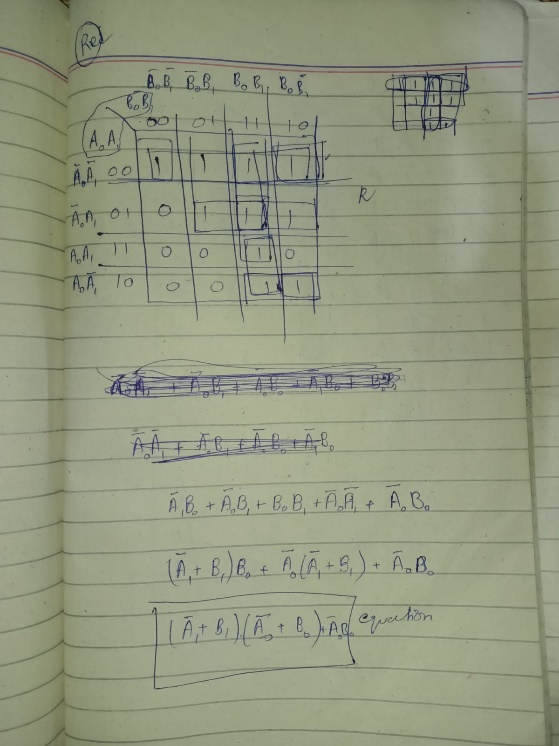 Red
B̅₀B̅₁ B̅₀B₁ B₀B₁ B₀B̅₁
B₀B₁
00 01 11 10
A₀A₁
A̅₀A̅₁ 00 1 1 1 1
R
A̅₀A₁ 01 0 1 1 1
A₀A₁ 11 0 0 1 0
A₀A̅₁ 10 0 0 1 1
A̅₀A̅₁ + A̅₀B₁ + A̅₀B₀ + A̅₁B₀
A̅₁B₀ + A̅₀B₁ + B₀B₁ + A̅₀A̅₁ + A̅₀B₀
(A̅₁ + B₁)B₀ + A̅₀(A̅₁ + B₁) + A̅₀B₀
(A̅₁ + B₁).(A̅₀ + B₀) + A̅₀B₀ equation